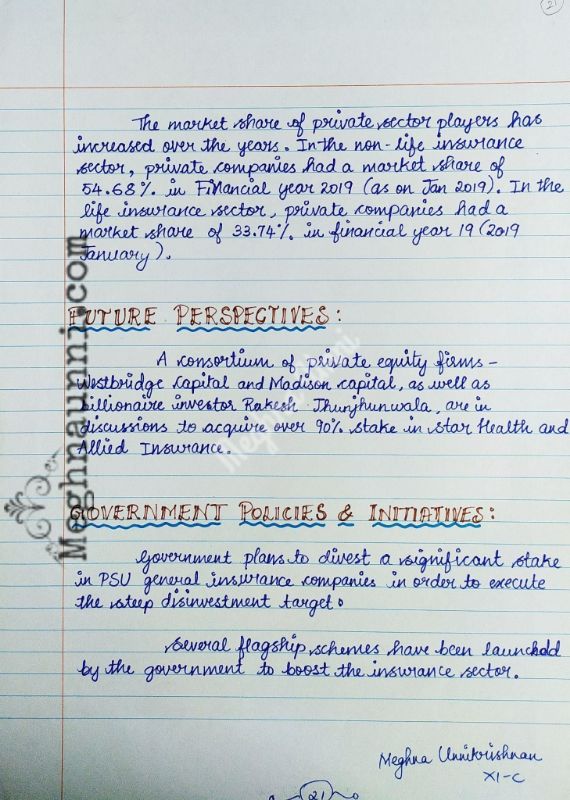 21
The market share of private sector players has
increased over the years. In the non-life insurance
sector, private companies had a market share of
54.68% in Financial year 2019 (as on Jan 2019). In the
life insurance sector, private companies had a
market share of 33.74% in financial year 19 (2019
January).
FUTURE PERSPECTIVES:
A consortium of private equity firms -
Westbridge Capital and Madison capital, as well as
billionaire investor Rakesh Jhunjhunwala, are in
discussions to acquire over 90% stake in Star Health and
Allied Insurance.
GOVERNMENT POLICIES & INITIATIVES:
Government plans to divest a significant stake
in PSU general insurance companies in order to execute
the steep disinvestment target.
Several flagship schemes have been launched
by the government to boost the insurance sector.
Meghna Unnikrishnan
XI-C
21
Meghnaunni.com